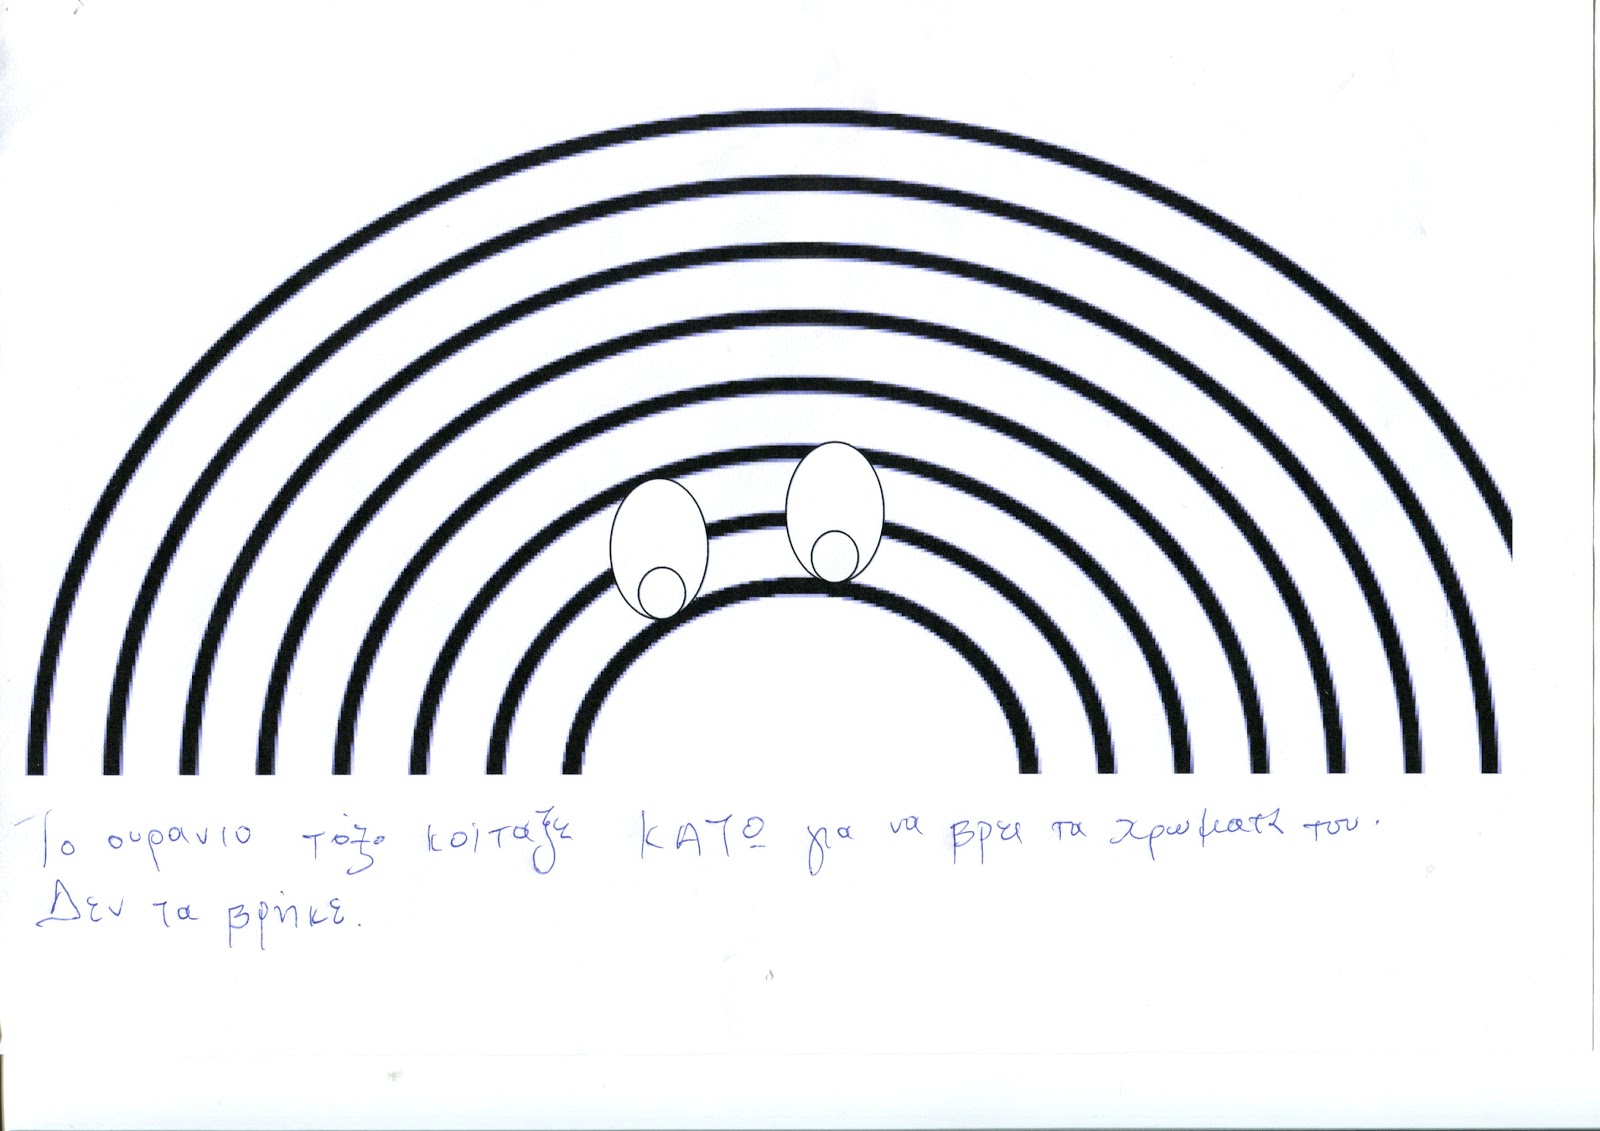 Το ουρανιο τόξο κοίταξε ΚΑΤΩ για να βρει τα χρωματα του.
Δεν τα βρήκε.